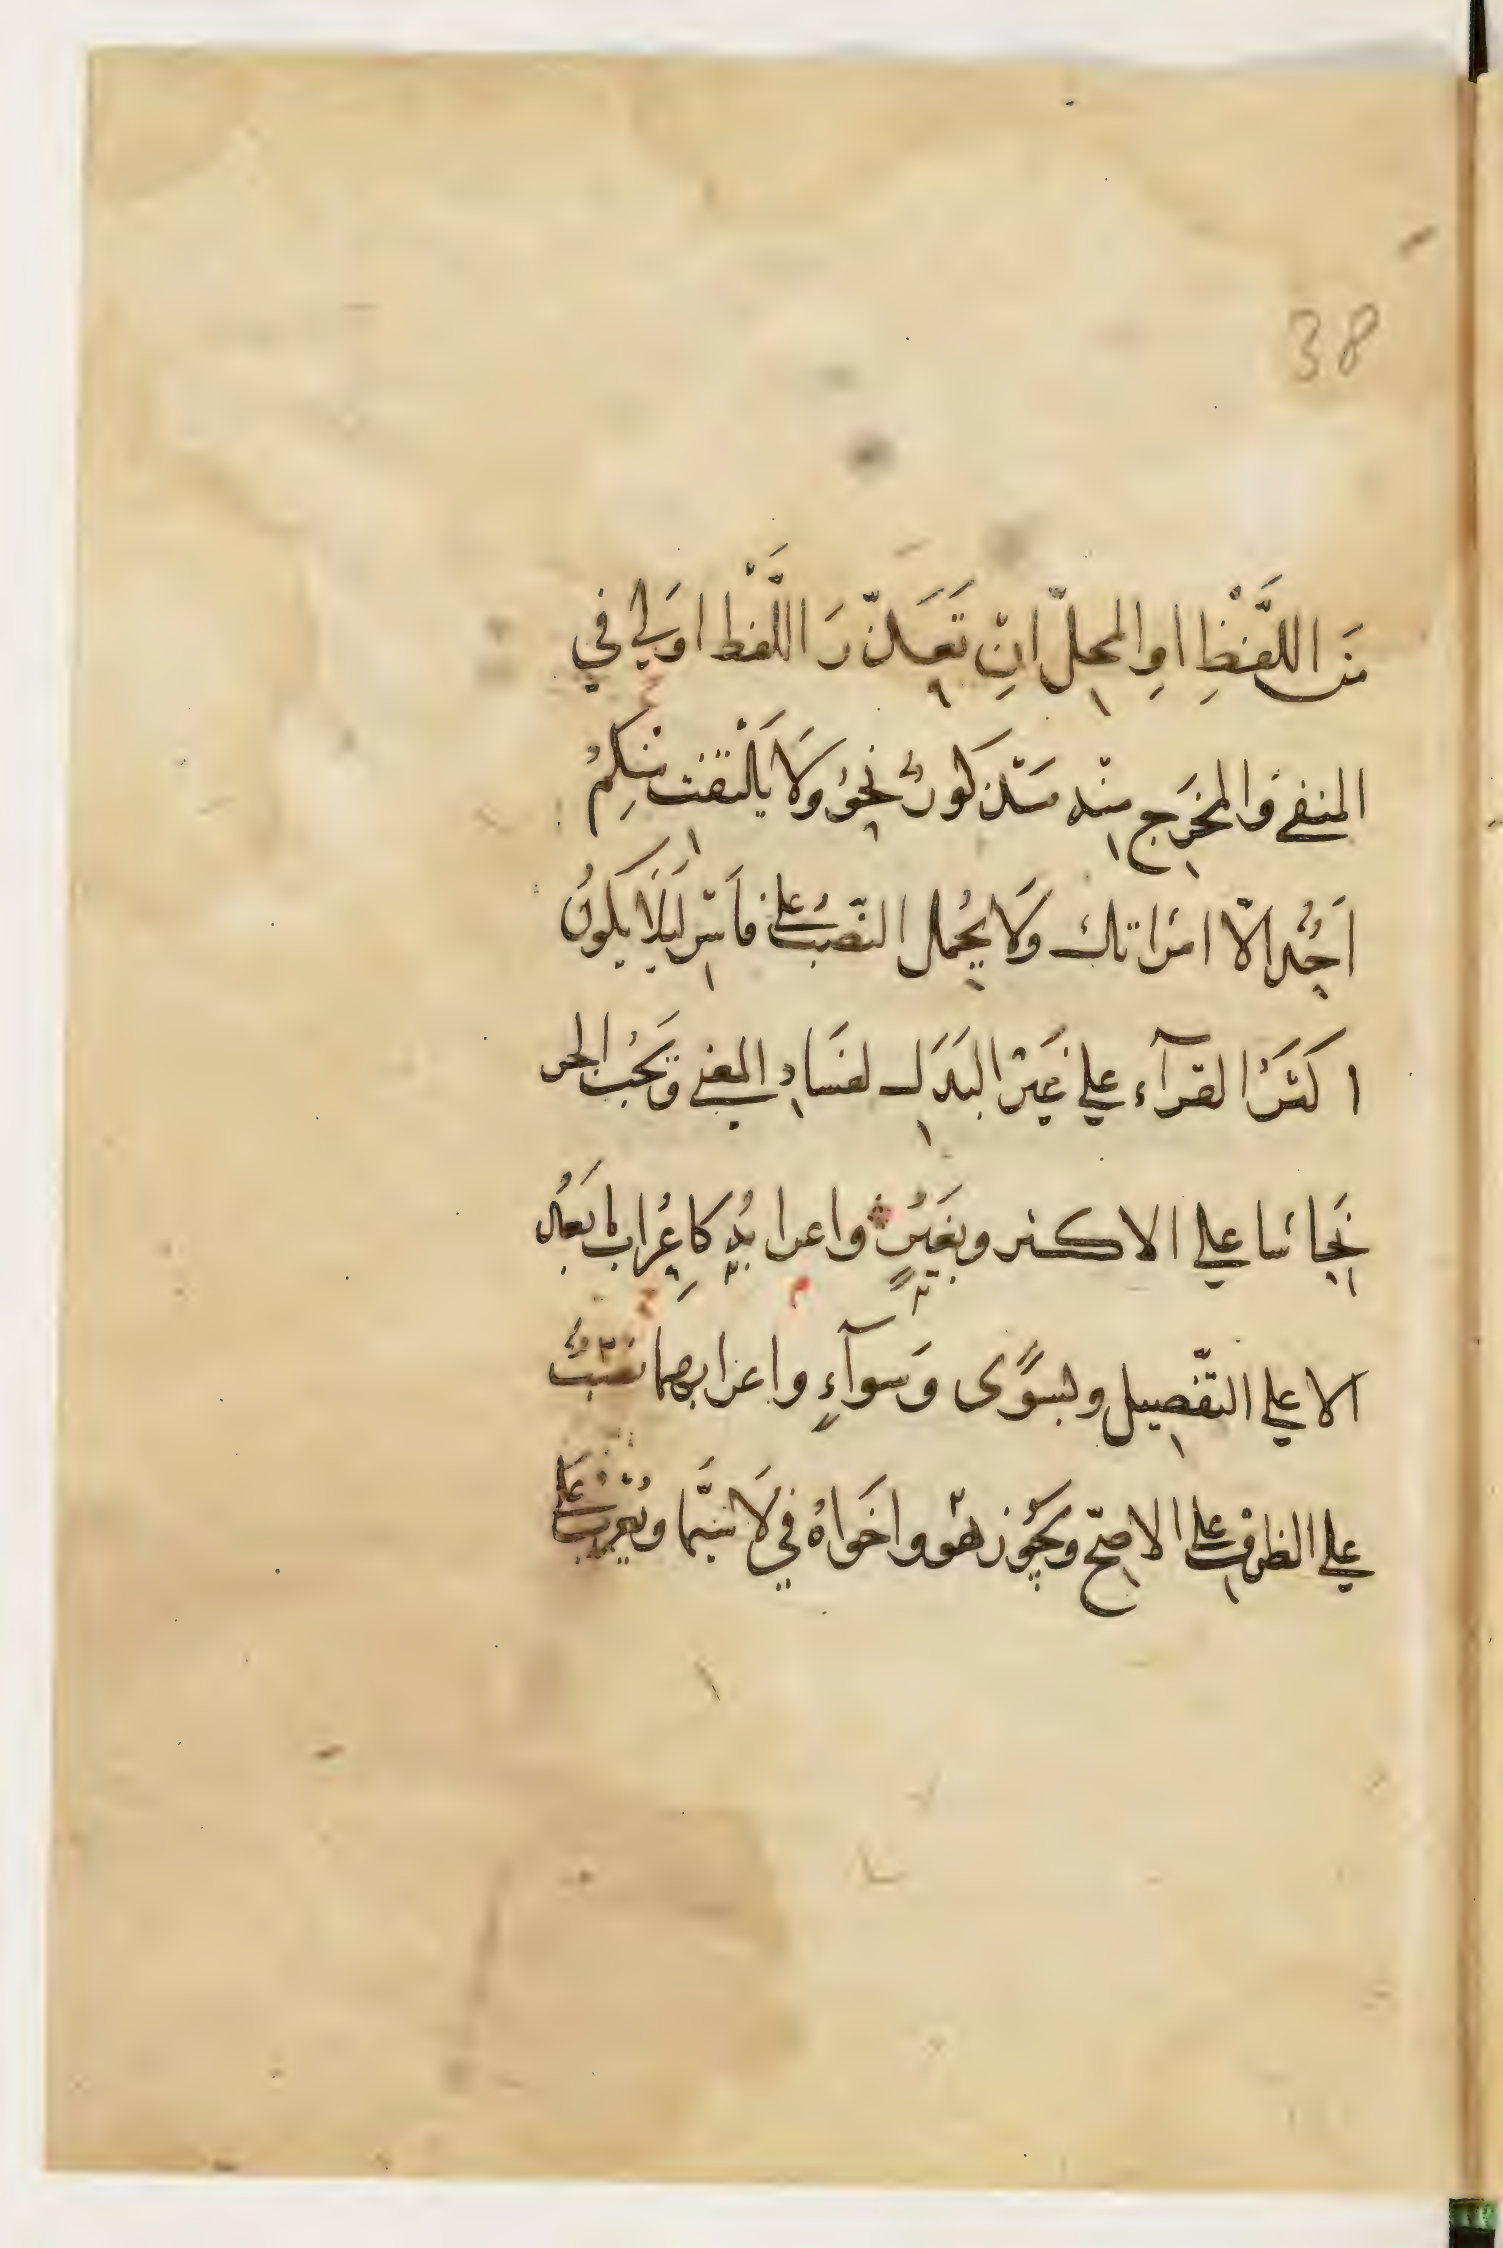 38
مِنَ اللَّفْظِ اوِ المحلّ انْ تَعَذّرَ اللَّفْظ اوَلي في
المنفي وَالمخرَج منْه مَذكورٌ نحوُ وَلَا يَلْتفت منكمْ
اَحدٌ الّا امْرَاتك وَلَا يُحمل النّصْبُ علي لئَلَّا يكونُ
اكثَرُ القرآء علي غَيْر البَدَل لفسَادِ المعني وَيجُب الجر
بحاشا علي الاكثر وبغَيْرٍ واعرابُه كاِعْراب مابَعْد
الا علي التّفصيل وبسوًى وَسوآءٍ واعرابهما نصْبٌ
علي الظرْف علي الاصَحّ ويجُوز هوْ واخوَاهُ في لَا سيَّما ويُعْرب علي